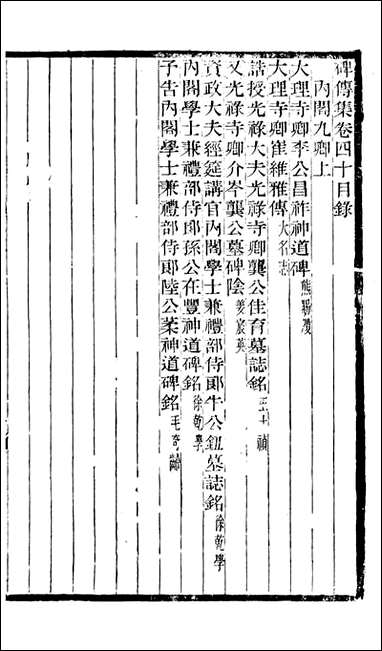 碑傳集卷四十目錄
內閣九卿上
大理寺卿李公昌祚神道碑 熊賜履
大理寺卿崔維雅傳 大名志
誥授光祿大夫光祿寺卿龔公佳育墓誌銘 王士禎
又光祿寺卿介岑龔公墓碑陰 姜宸英
資政大夫經筵講官內閣學士兼禮部侍郎牛公鈕墓誌銘 徐乾學
內閣學士兼禮部侍郎孫公在豐神道碑銘 徐乾學
予告內閣學士兼禮部侍郎陸公棻神道碑銘 毛奇齡